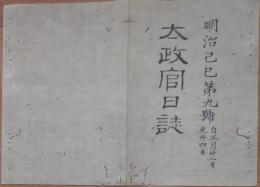 明治己巳第九號
自正月廿一日
至廿四日
太政官日誌